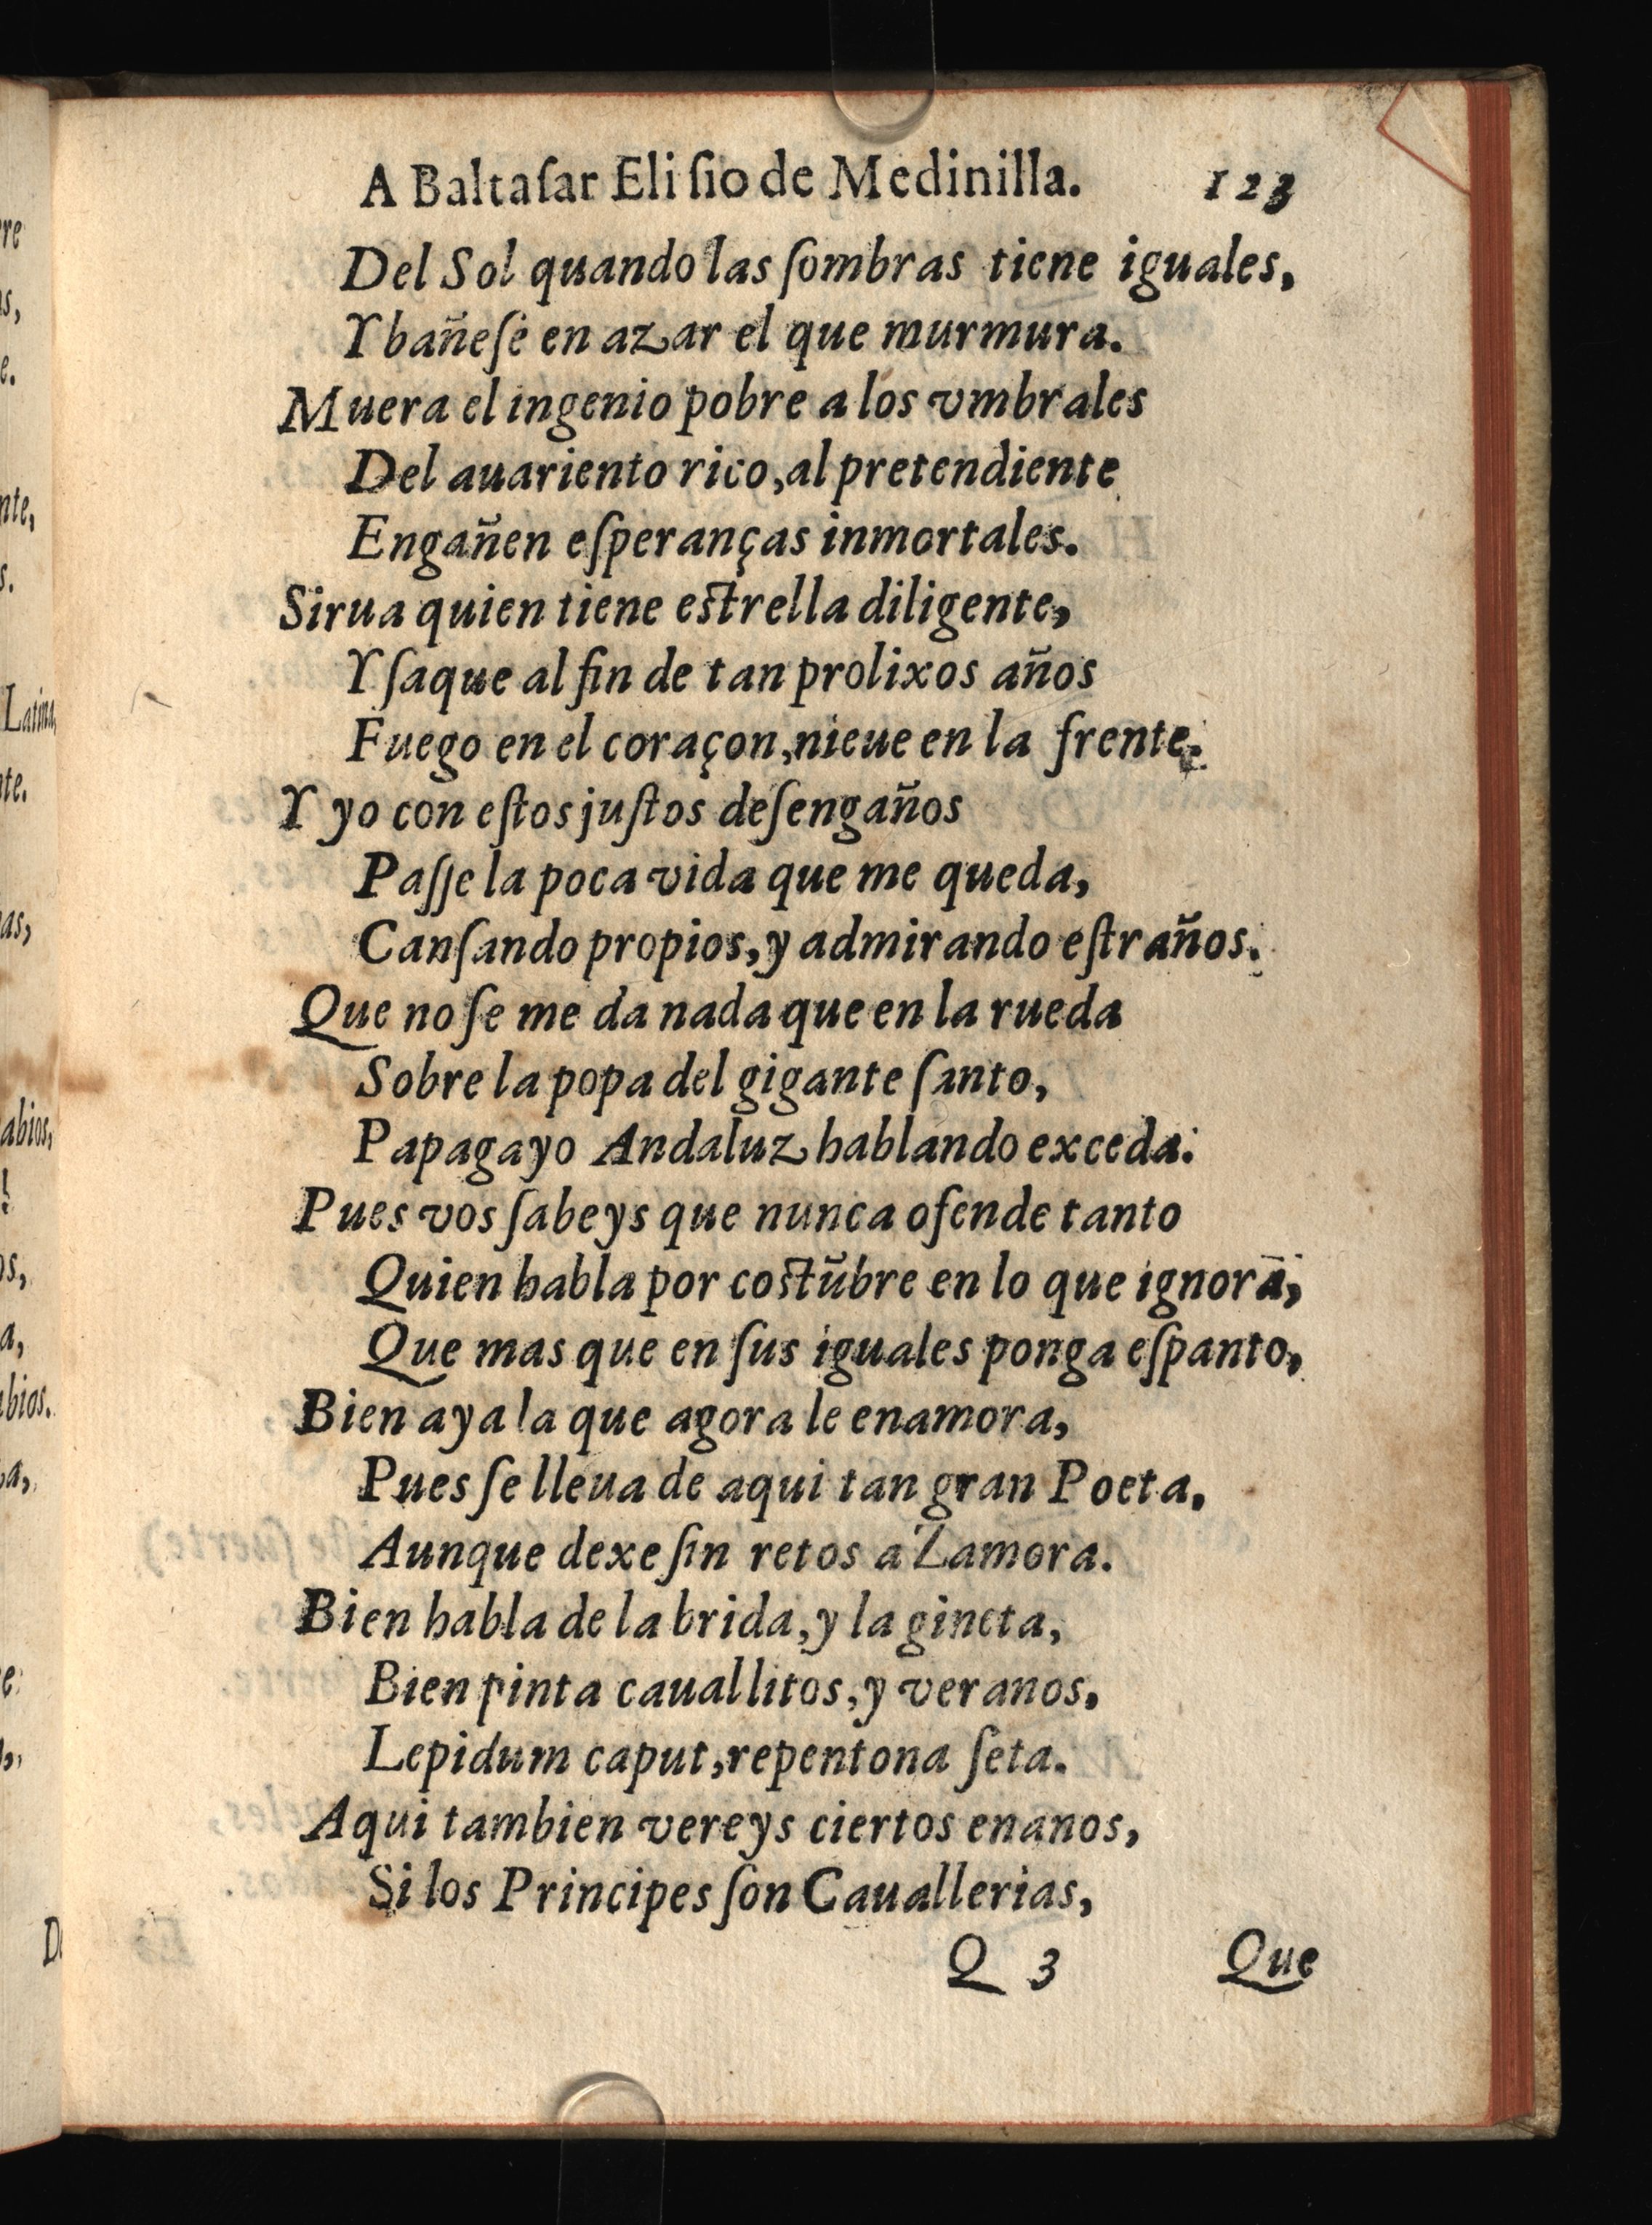 A Baltaſar Eliſio de Medinilla. 123
Del Sol quando las ſombras tiene iguales,
Y bañeſe en azar el que murmura.
Muera el ingenio pobre a los vmbrales
Del auariento rico, al pretendiente
Engañen eſperanças inmortales.
Sirua quien tiene eſtrella diligente,
Y ſaque al fin de tan prolixos años
Fuego en el coraçon, nieue en la frente.
Y yo con eſtos juſtos deſengaños
Paſſe la poca vida que me queda,
Canſando propios, y admirando eſtraños.
Que no ſe me da nada que en la rueda
Sobre la popa del gigante ſanto,
Papagayo Andaluz hablando exceda:
Pues vos ſabeys que nunca ofende tanto
Quien habla por coſtũbre en lo que ignora,
Que mas que en ſus iguales ponga eſpanto,
Bien aya la que agora le enamora,
Pues ſe lleua de aqui tan gran Poeta,
Aunque dexe ſin retos a Zamora.
Bien habla de la brida, y la gineta,
Bien pinta cauallitos, y veranos,
Lepidum caput, repentona ſeta.
Aqui tambien vereys ciertos enanos,
Si los Principes ſon Cauallerias,
Q 3 Que